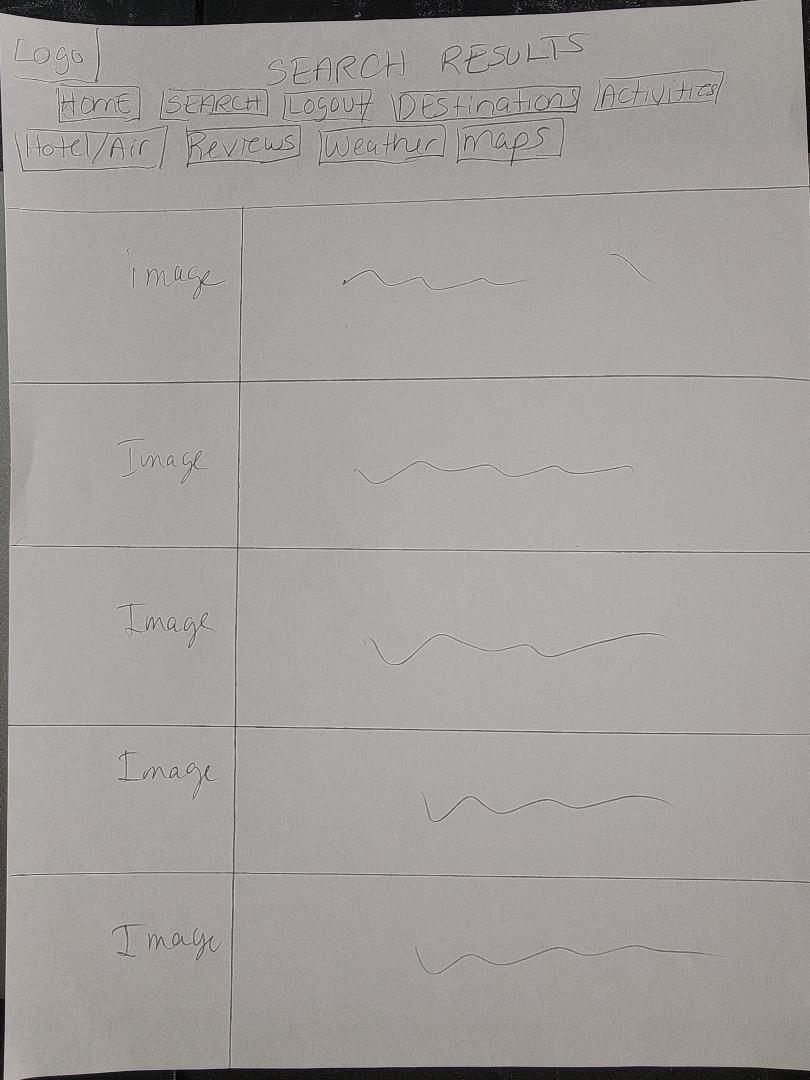 Logo
SEARCH RESULTS
HOME SEARCH Logout DEStinations Activities
Hotel/Air Reviews Weather maps
image
Image
Image
Image
Image